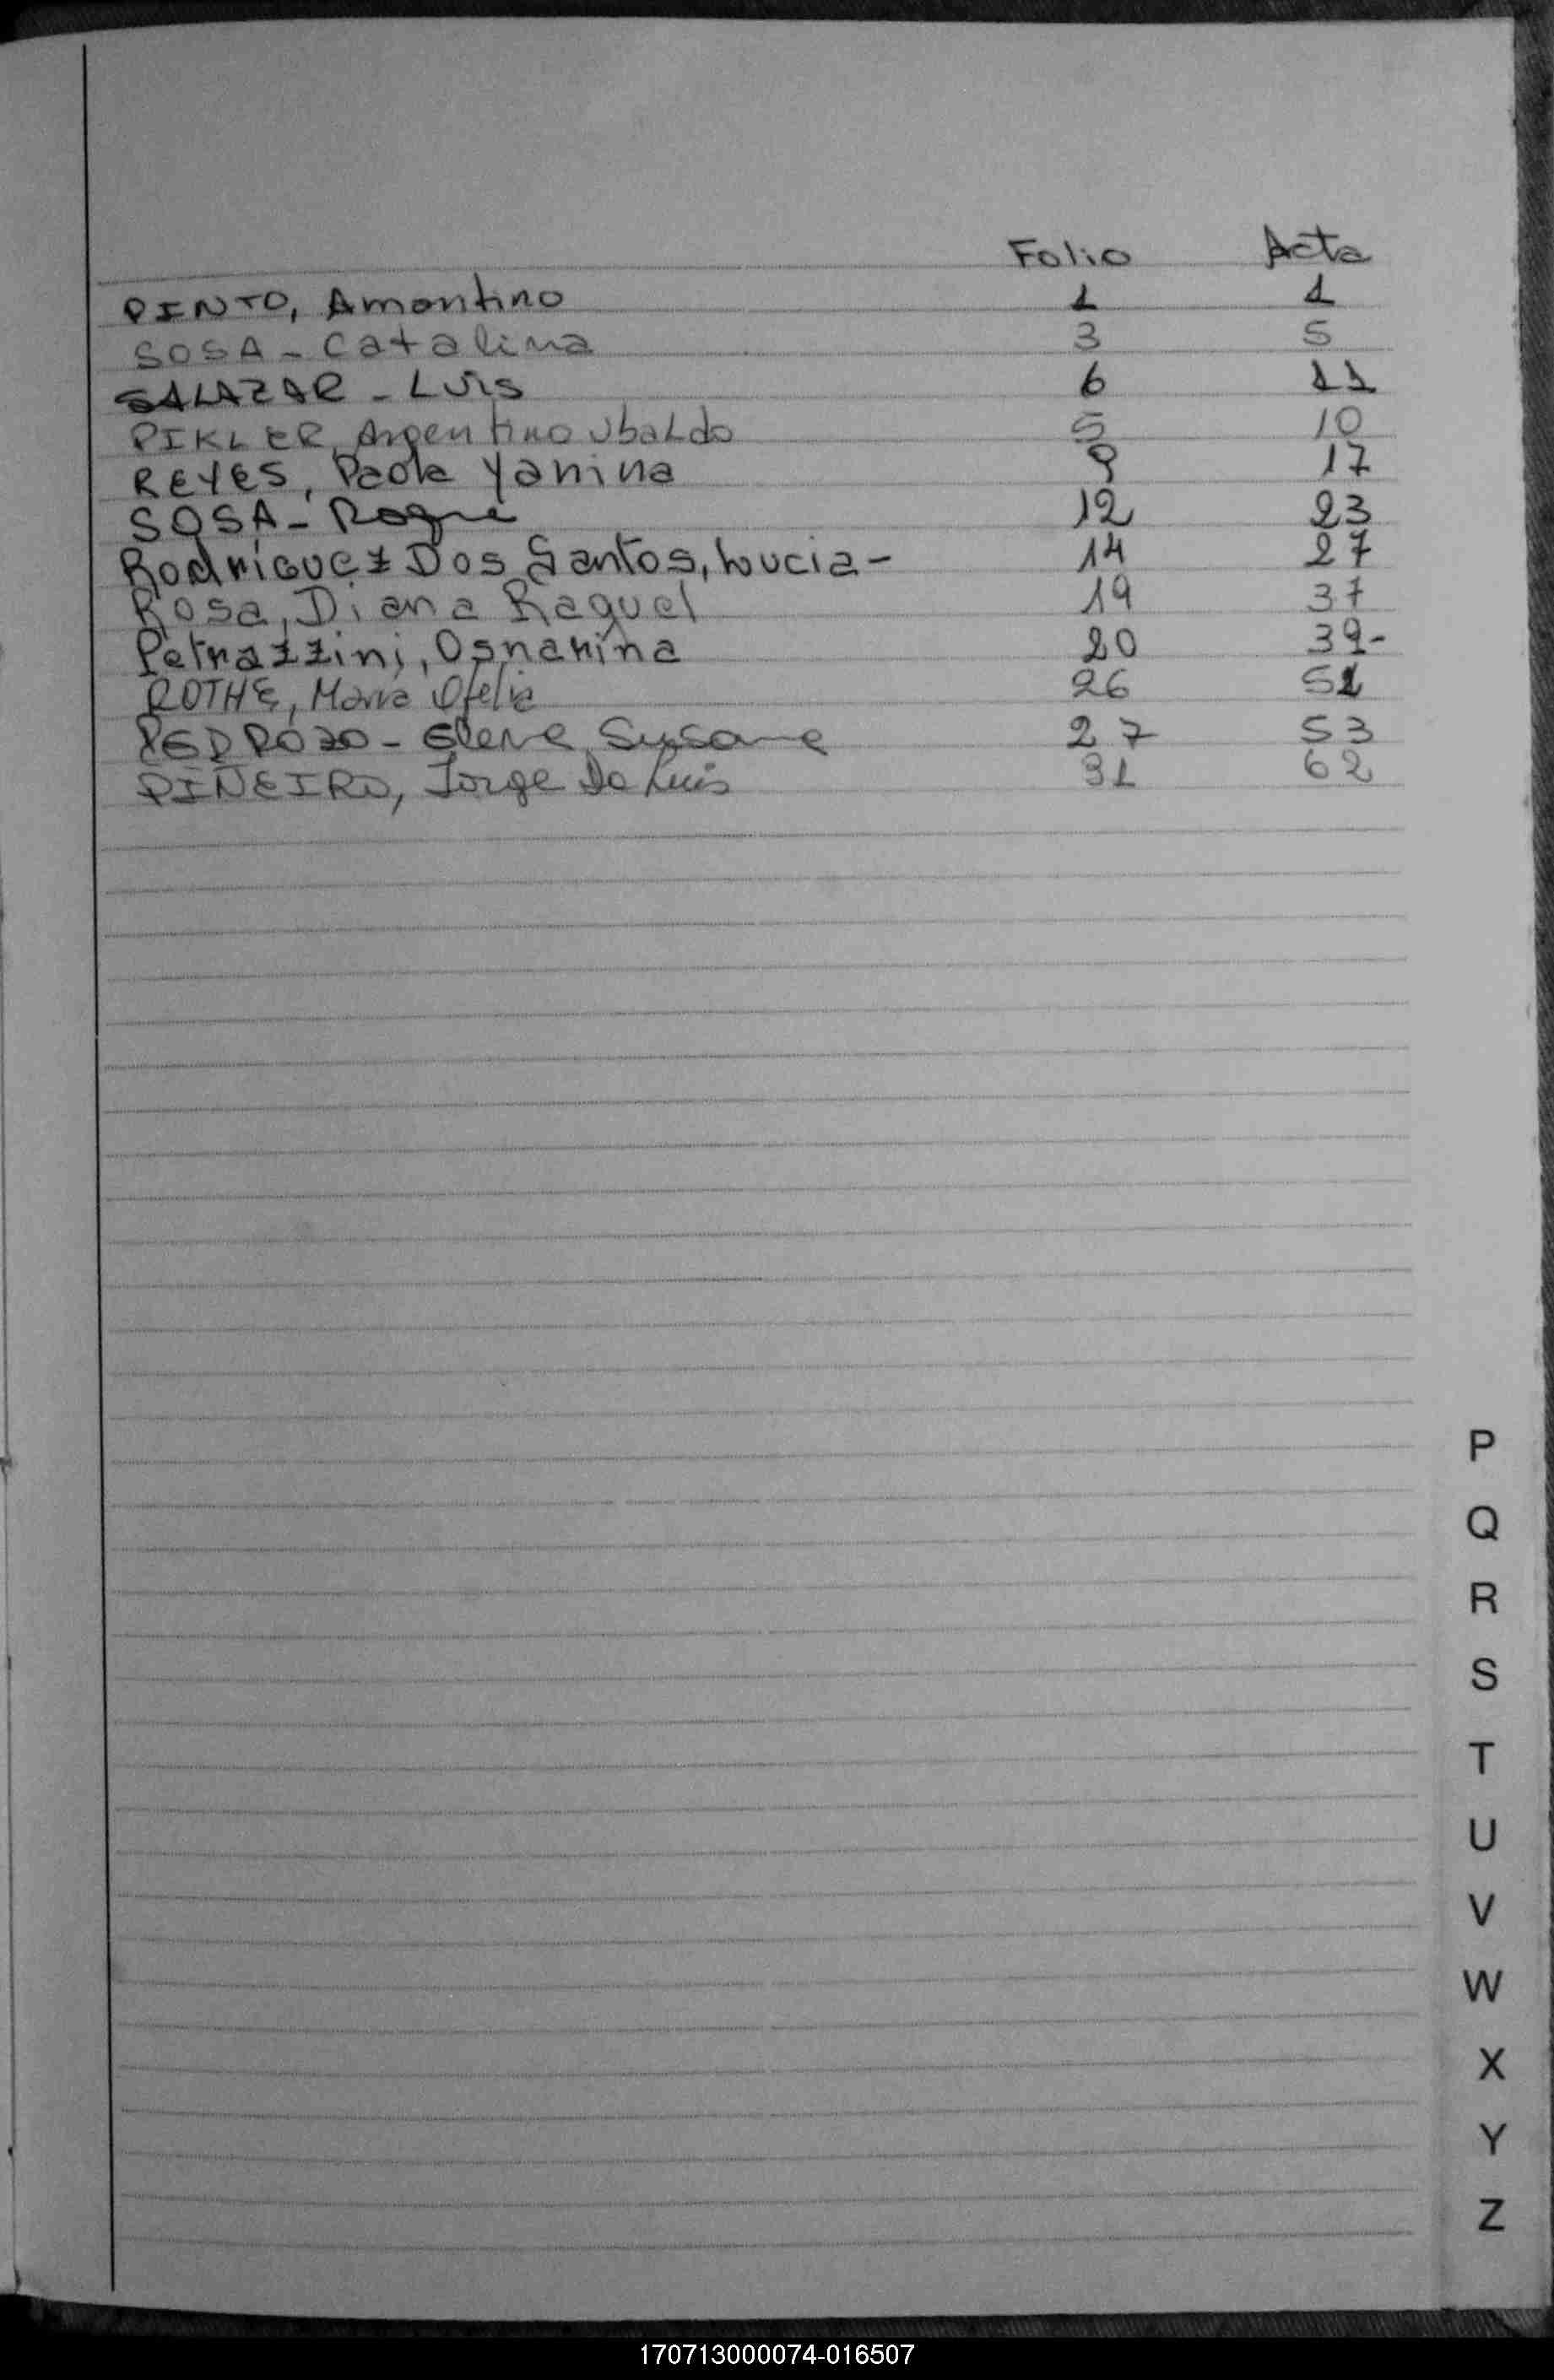 Folio Acta
PINTO, Amantino 1 1
SOSA - Catalina 3 5
SALAZAR - Luis 6 11
PIKLER, Argentino Ubaldo 5 10
REYES, Paola Yanina 9 17
SOSA - Roque 12 23
Rodriguez Dos Santos, Lucia - 14 27
Rosa, Diana Raquel 19 37
Petrazzini, Osnanina 20 39-
ROTHE, Maria Ofelia 26 51
PEDROZO - Elena Susana 27 53
PIÑEIRO, Jorge De Luis 31 62
P
Q
R
S
T
U
V
W
X
Y
Z
170713000074-016507